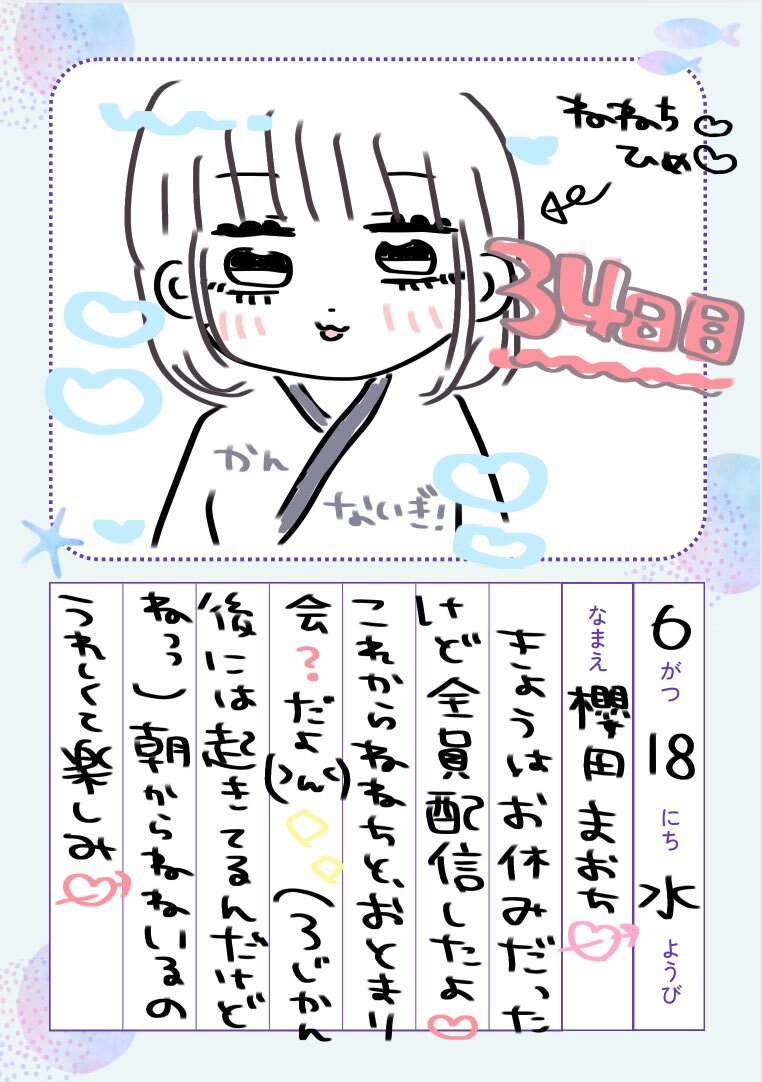 ねねち♡
ひめ♡
34日目
かん
ないぎ!
6がつ18にち水ようび
なまえ 櫻田まおち
きょうはお休みだった
けど全員配信したよ♡
これからねねちと、おとまり
会?だよ(>ん<) (3じかん
後には起きてるんだけど
ねっっ)朝からねねいるの
うれしくて楽しみ